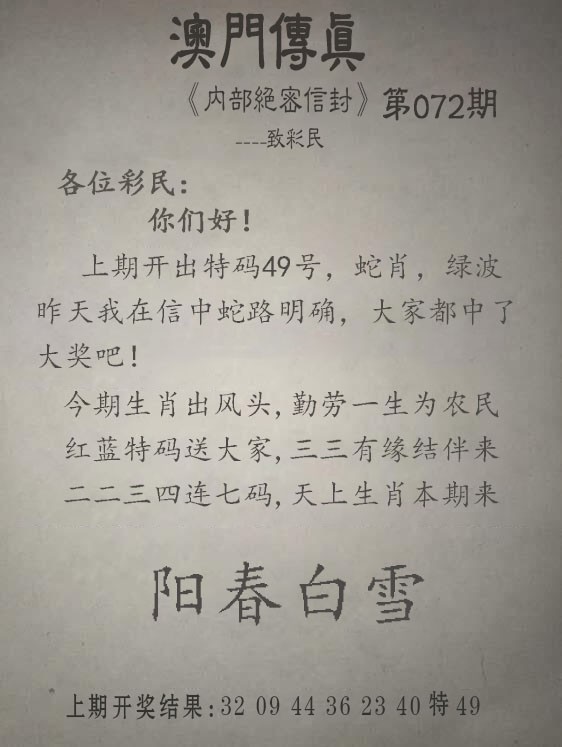 澳門傳真
《内部絕密信封》第072期
----致彩民
各位彩民：
你们好！
上期开出特码49号，蛇肖，绿波
昨天我在信中蛇路明确，大家都中了
大奖吧！
今期生肖出风头,勤劳一生为农民
红蓝特码送大家,三三有缘结伴来
二二三四连七码,天上生肖本期来
阳春白雪
上期开奖结果:32 09 44 36 23 40 特 49